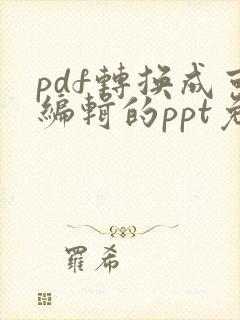 pdf轉換成可
編輯的ppt免
羅希